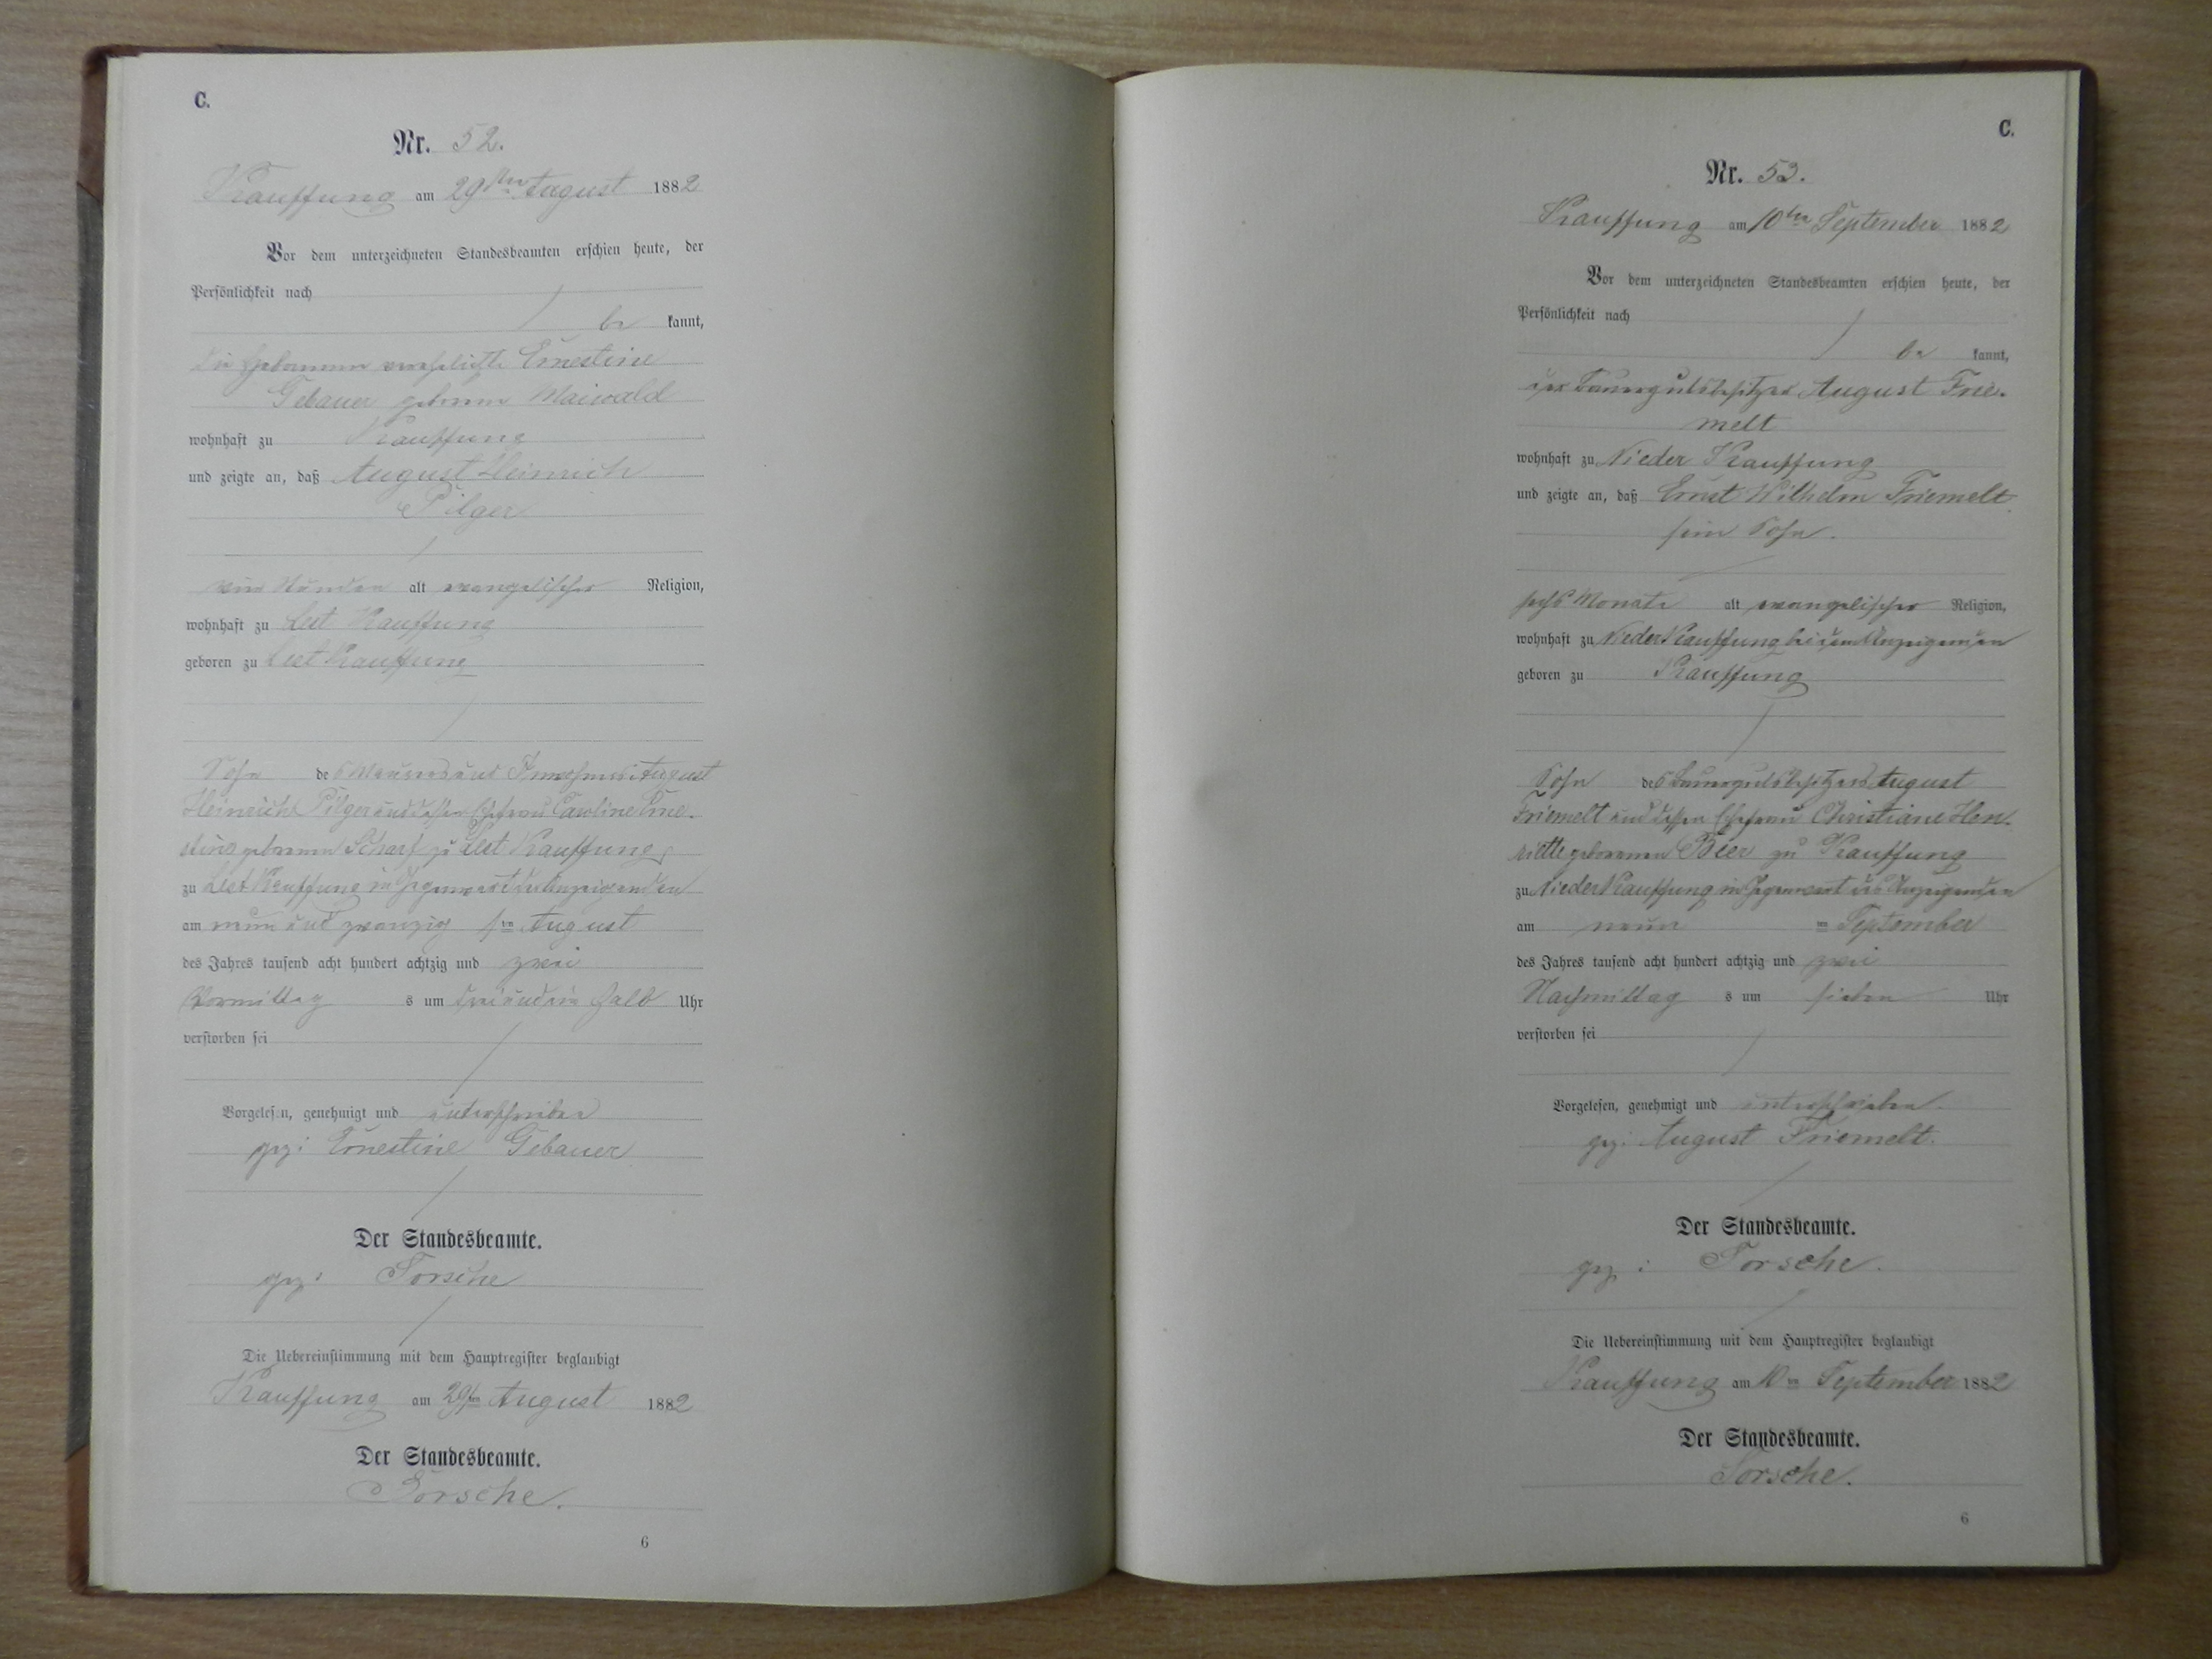 C.
Nr. 52.
Kauffung am 29sten August 1882
Vor dem unterzeichneten Standesbeamten erschien heute, der
Persönlichkeit nach
be kannt,
die Hebamme verehelichte Ernestine
Gebauer geborene Maiwald
wohnhaft zu Kauffung
und zeigte an, daß August Heinrich
Pilger
Stunden alt evangelischer Religion,
wohnhaft zu Lest Kauffung
geboren zu Lest Kauffung
Sohn des Maurers und Inwohners August
Heinrich Pilger und dessen Ehefrau Caroline Erne-
stine geborenen Scharf zu Lest Kauffung
zu Lest Kauffung in Gegenwart der Anzeigenden
am neun und zwanzig sten August
des Jahres tausend acht hundert achtzig und zwei
Vormittag s um drei und ein halb Uhr
verstorben sei
Vorgelesen, genehmigt und unterschrieben
gez: Ernestine Gebauer
Der Standesbeamte.
gez: Torsche
Die Uebereinstimmung mit dem Hauptregister beglaubigt
Kauffung am 29sten August 1882
Der Standesbeamte.
Torsche.
6
C.
Nr. 53.
Kauffung am 10ten September 1882
Vor dem unterzeichneten Standesbeamten erschien heute, der
Persönlichkeit nach
be kannt,
der Bauergutsbesitzer August Frie-
melt
wohnhaft zu Nieder Kauffung
und zeigte an, daß Ernst Wilhelm Friemelt
sein Sohn.
sechs Monate alt evangelischer Religion,
wohnhaft zu Nieder Kauffung bei dem Anzeigenden
geboren zu Kauffung
Sohn des Bauergutsbesitzers August
Friemelt und dessen Ehefrau Christiane Hen-
riette geborenen Beer zu Kauffung
zu Nieder Kauffung in Gegenwart des Anzeigenden
am neun ten September
des Jahres tausend acht hundert achtzig und zwei
Nachmittag s um sieben Uhr
verstorben sei
Vorgelesen, genehmigt und unterschrieben.
gez: August Friemelt.
Der Standesbeamte.
gez: Torsche.
Die Uebereinstimmung mit dem Hauptregister beglaubigt
Kauffung am 10ten September 1882
Der Standesbeamte.
Torsche.
6